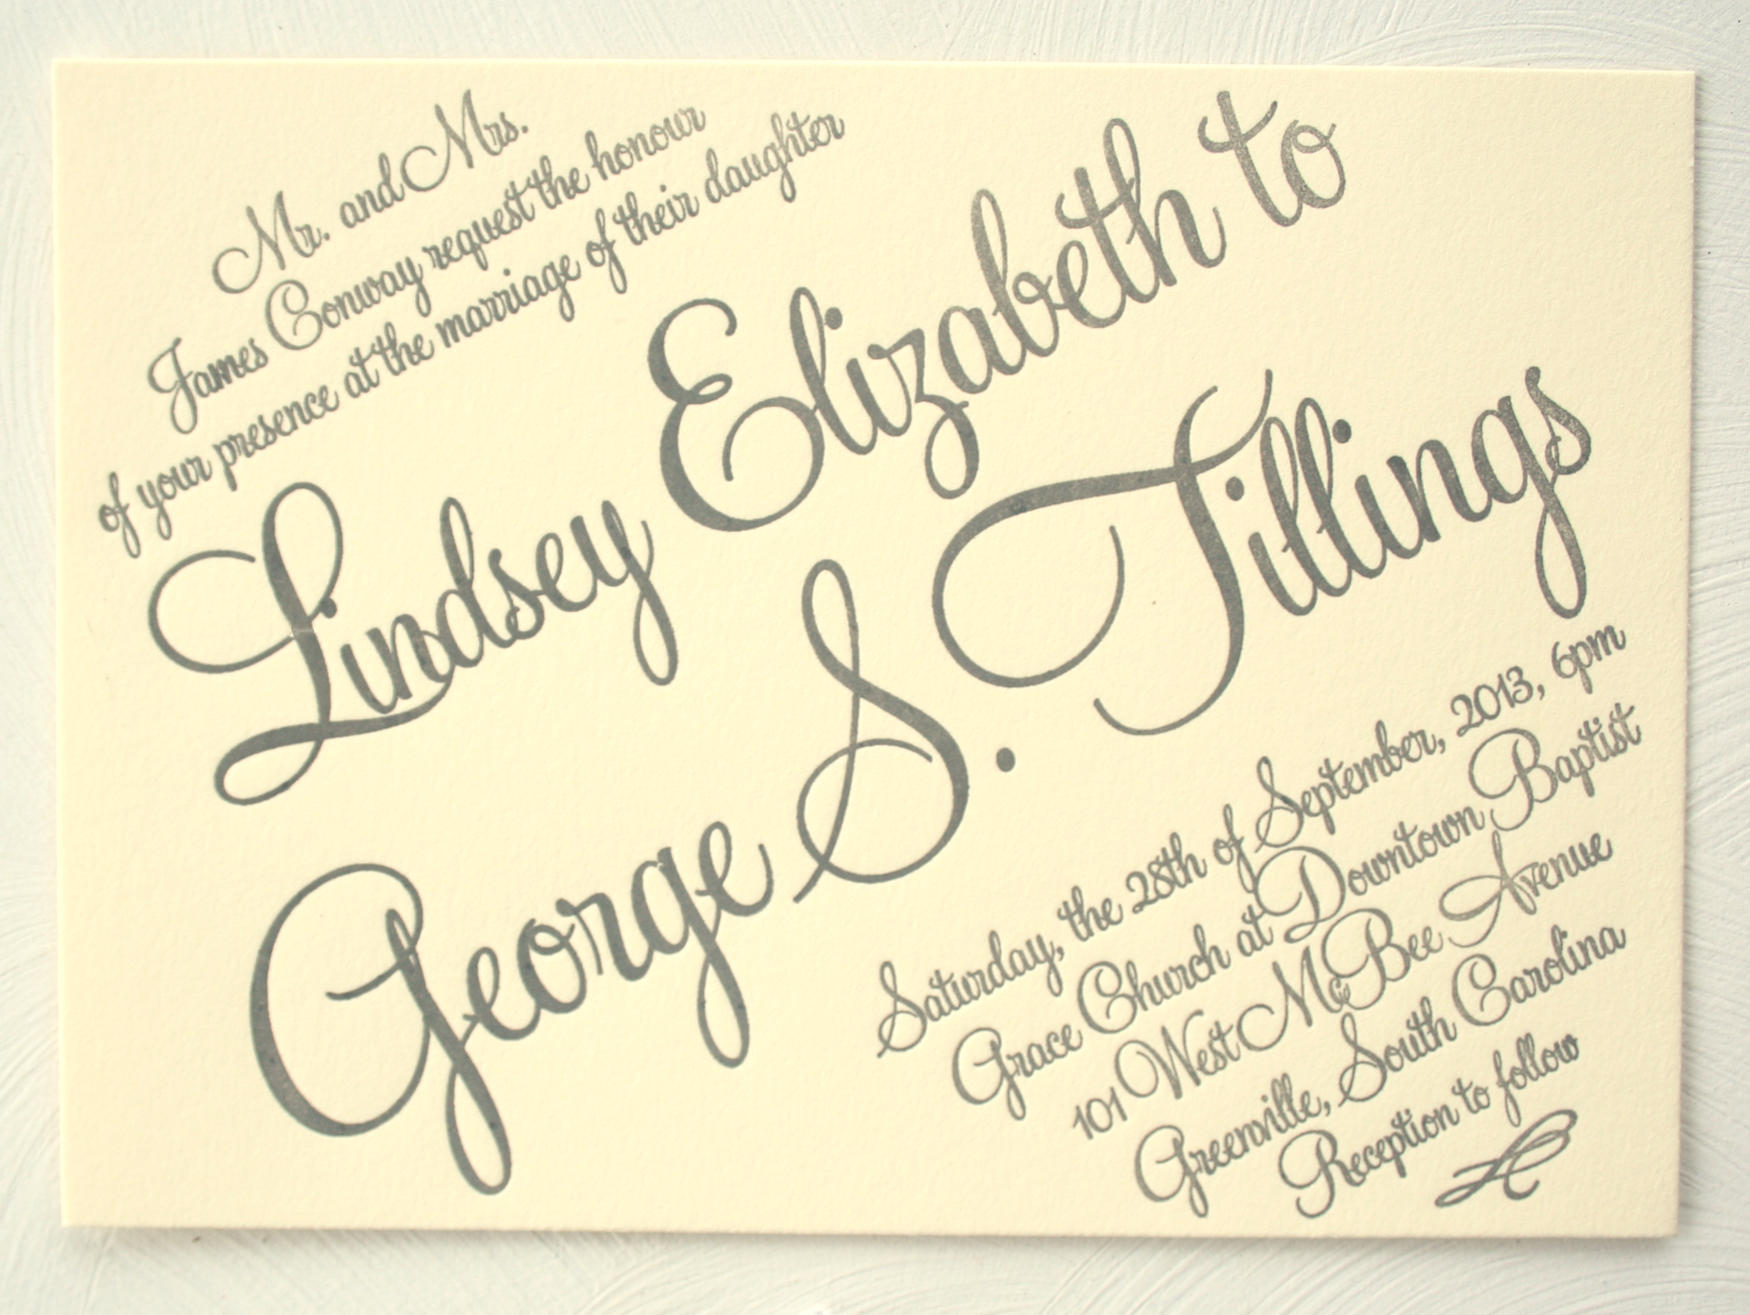 Mr. and Mrs.
James Conway request the honour
of your presence at the marriage of their daughter
Lindsey Elizabeth to
George S. Tillings
Saturday, the 28th of September, 2013, 6pm
Grace Church at Downtown Baptist
101 West McBee Avenue
Greenville, South Carolina
Reception to follow